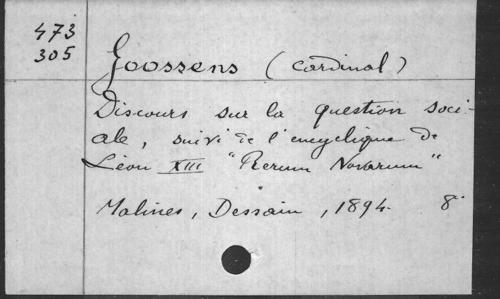 473
305
Goossens (cardinal)
Discours sur la question soci-
ale, suivi de l'encyclique de
Léon XIII "Rerum Novarum"
Malines, Dessain, 1894. 8°